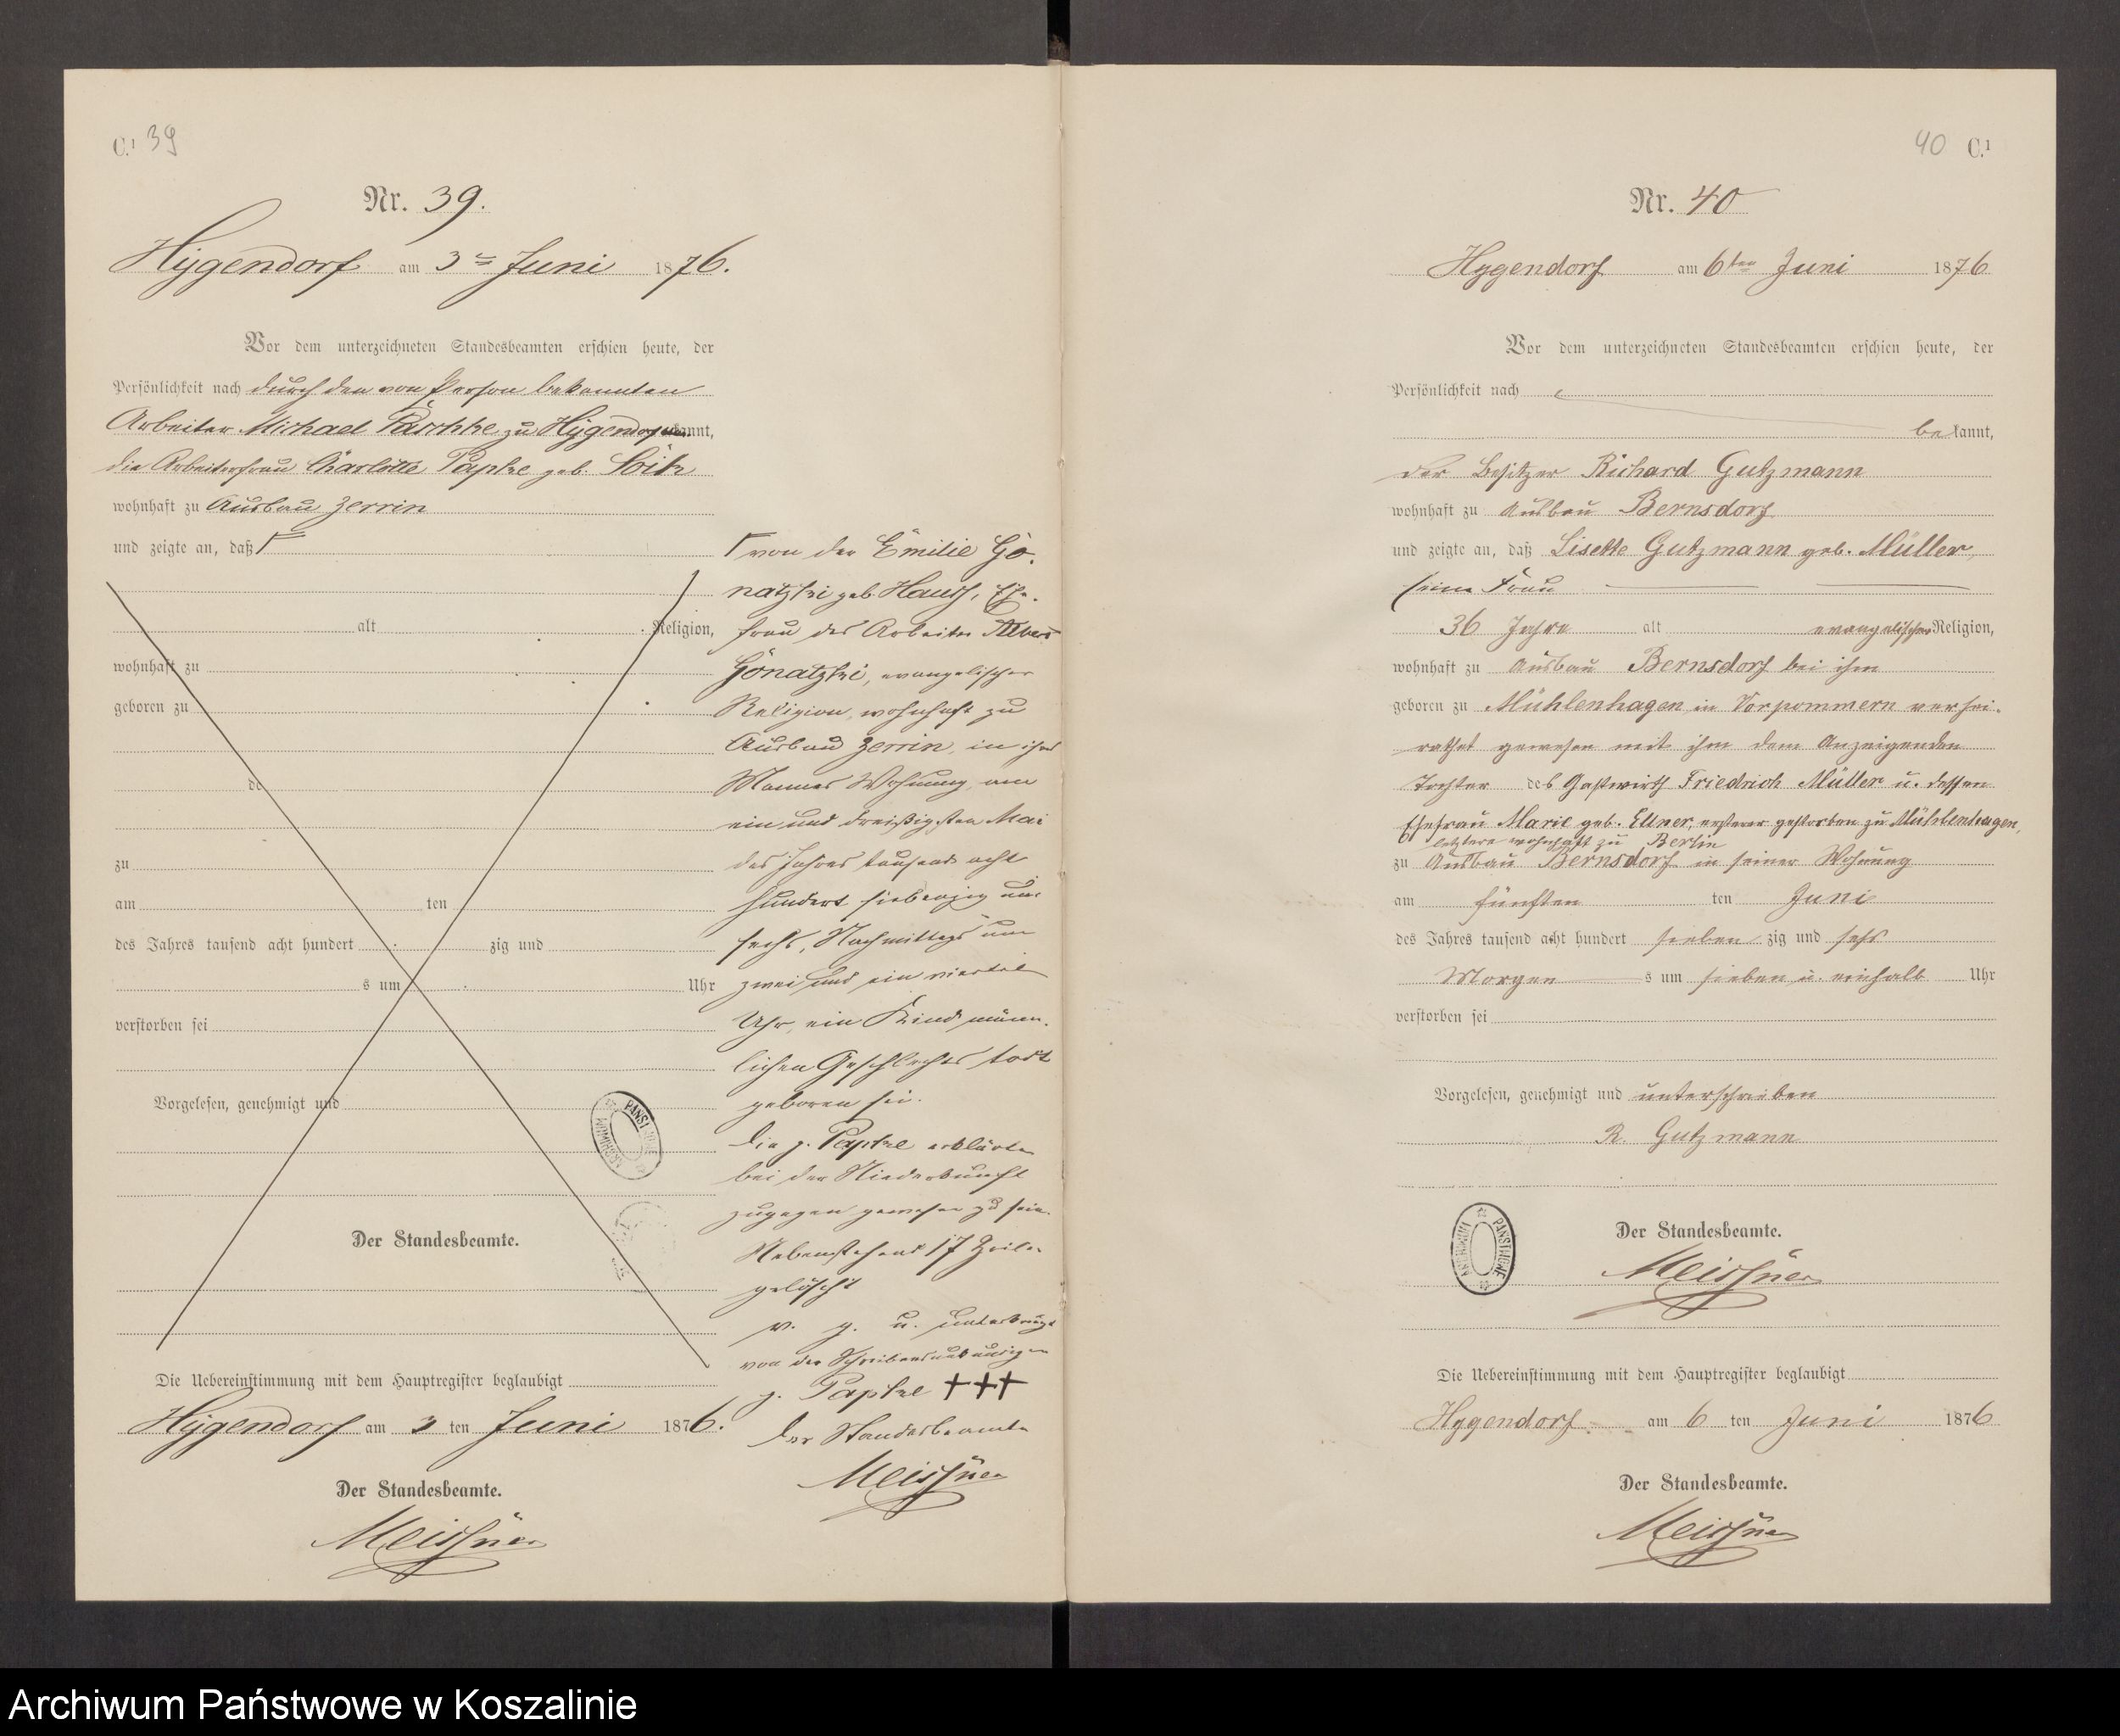 C.1 39
Nr. 39.
Hygendorf am 3ten Juni 1876.
Vor dem unterzeichneten Standesbeamten erschien heute, der
Persönlichkeit nach durch den von Person bekannten
Arbeiter Michael Paschke zu Hygendorf kannt,
die Arbeiterfrau Charlotte Papke geb.
wohnhaft zu Ausbau Zerrin
und zeigte an, daß
alt Religion,
wohnhaft zu
geboren zu
de
zu
am ten
des Jahres tausend acht hundert zig und
s um Uhr
verstorben sei
Vorgelesen, genehmigt und
Der Standesbeamte.
Die Uebereinstimmung mit dem Hauptregister beglaubigt
Hygendorf am 3 ten Juni 1876.
Der Standesbeamte.
Meissner
von der Emilie Go-
natzki geb. Hauss, Ehe-
frau des Arbeiter Albert
Gonatzki, evangelischer
Religion, wohnhaft zu
Ausbau Zerrin, in ihres
Mannes Wohnung am
ein und dreißigsten Mai
des Jahres tausend acht
hundert siebenzig und
sechs, Nachmittags um
zwei und ein viertel
Uhr, ein Kind männ-
lichen Geschlechts todt
geboren sei.
Die p. Papke erklärte
bei der Niederkunft
zugegen gewesen zu sein.
Nebenstehend 17 Zeilen
gelöscht
v. g. u. unterkreuzt
von der Schreibensunkundigen
p. Papke +++
Der Standesbeamte
Meissner
40 C.1
Nr. 40
Hygendorf am 6ten Juni 1876
Vor dem unterzeichneten Standesbeamten erschien heute, der
Persönlichkeit nach
bekannt,
der Besitzer Richard Gutzmann
wohnhaft zu Ausbau Bernsdorf
und zeigte an, daß Lisette Gutzmann geb. Müller,
seine Frau
36 Jahre alt evangelischer Religion,
wohnhaft zu Ausbau Bernsdorf bei ihm
geboren zu Mühlenhagen in Vorpommern verhei-
rathet gewesen mit ihm dem Anzeigenden
Tochter des Gastwirth Friedrich Müller u. dessen
Ehefrau Marie geb. Ellner, ersterer gestorben zu Mühlenhagen,
letztere wohnhaft zu Berlin
zu Ausbau Bernsdorf in seiner Wohnung
am fünften ten Juni
des Jahres tausend acht hundert sieben zig und sechs
Morgen s um sieben u. einhalb Uhr
verstorben sei
Vorgelesen, genehmigt und unterschrieben
R. Gutzmann
Der Standesbeamte.
Meissner
Die Uebereinstimmung mit dem Hauptregister beglaubigt
Hygendorf am 6 ten Juni 1876
Der Standesbeamte.
Meissner
ARCHIWUM PAŃSTWOWE
Archiwum Państwowe w Koszalinie